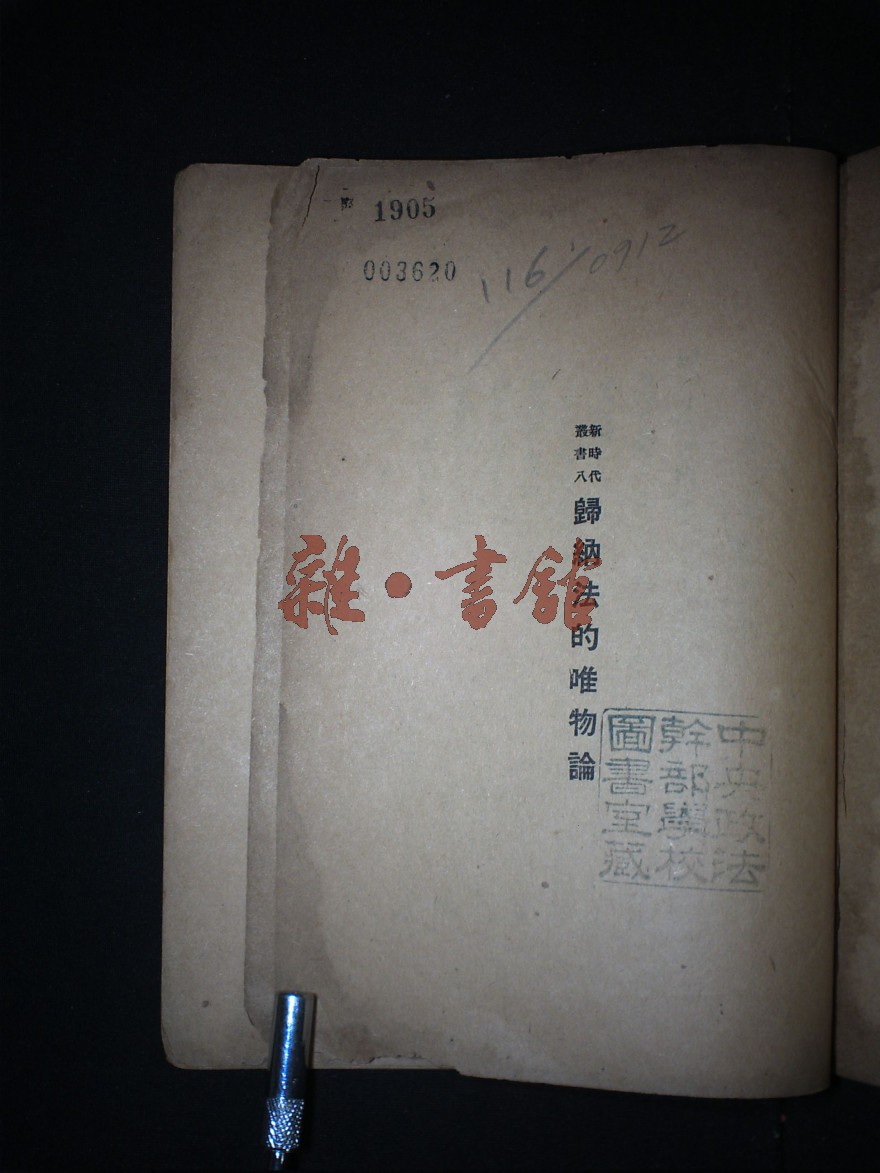 1905
003620
116/0912
新時代
叢書八
歸納法的唯物論
雜·書館
中央政法
幹部學校
圖書室藏